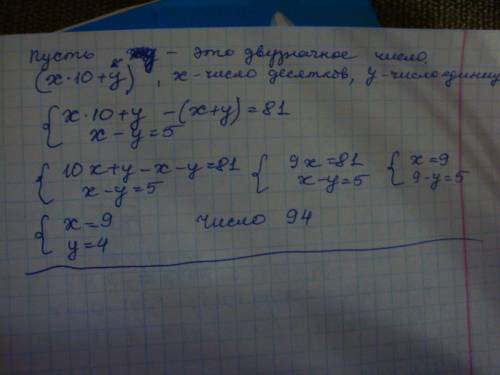 пусть xy - это двузначное число.
(x·10+y), x-число десятков, y-число единиц
{ x·10+y -(x+y)=81
x-y=5
{ 10x+y-x-y=81 { 9x=81 { x=9
x-y=5 x-y=5 9-y=5
{ x=9 число 94
y=4